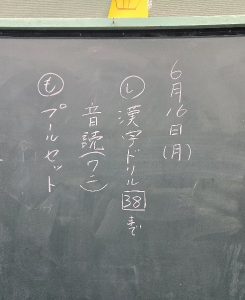 6月16日(月)
し 漢字ドリル38まで
音読(ワニ)
も プールセット